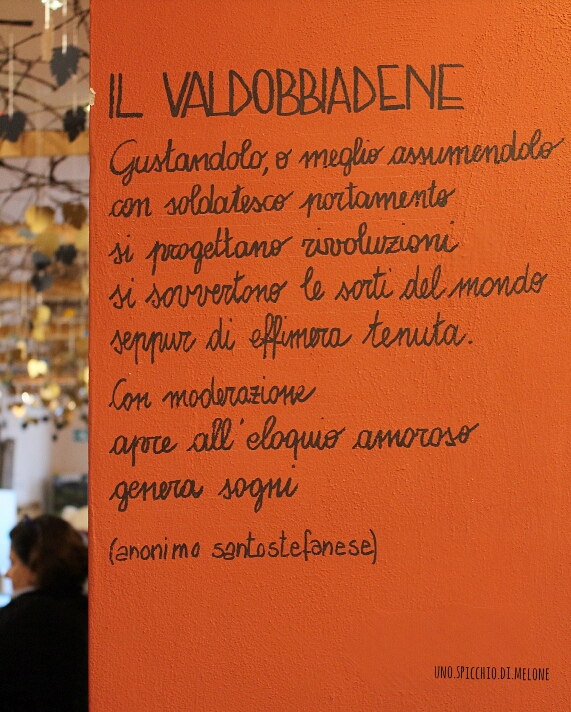 IL VALDOBBIADENE
Gustandolo, o meglio assumendolo
con soldatesco portamento
si progettano rivoluzioni
si sovvertono le sorti del mondo
seppur di effimera tenuta.
Con moderazione
apre all'eloquio amoroso
genera sogni
(anonimo santostefanese)
UNO.SPICCHIO.DI.MELONE